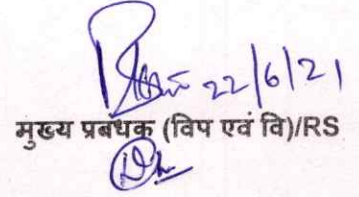 22/6/21
मुख्य प्रबधक (विप एवं वि)/RS